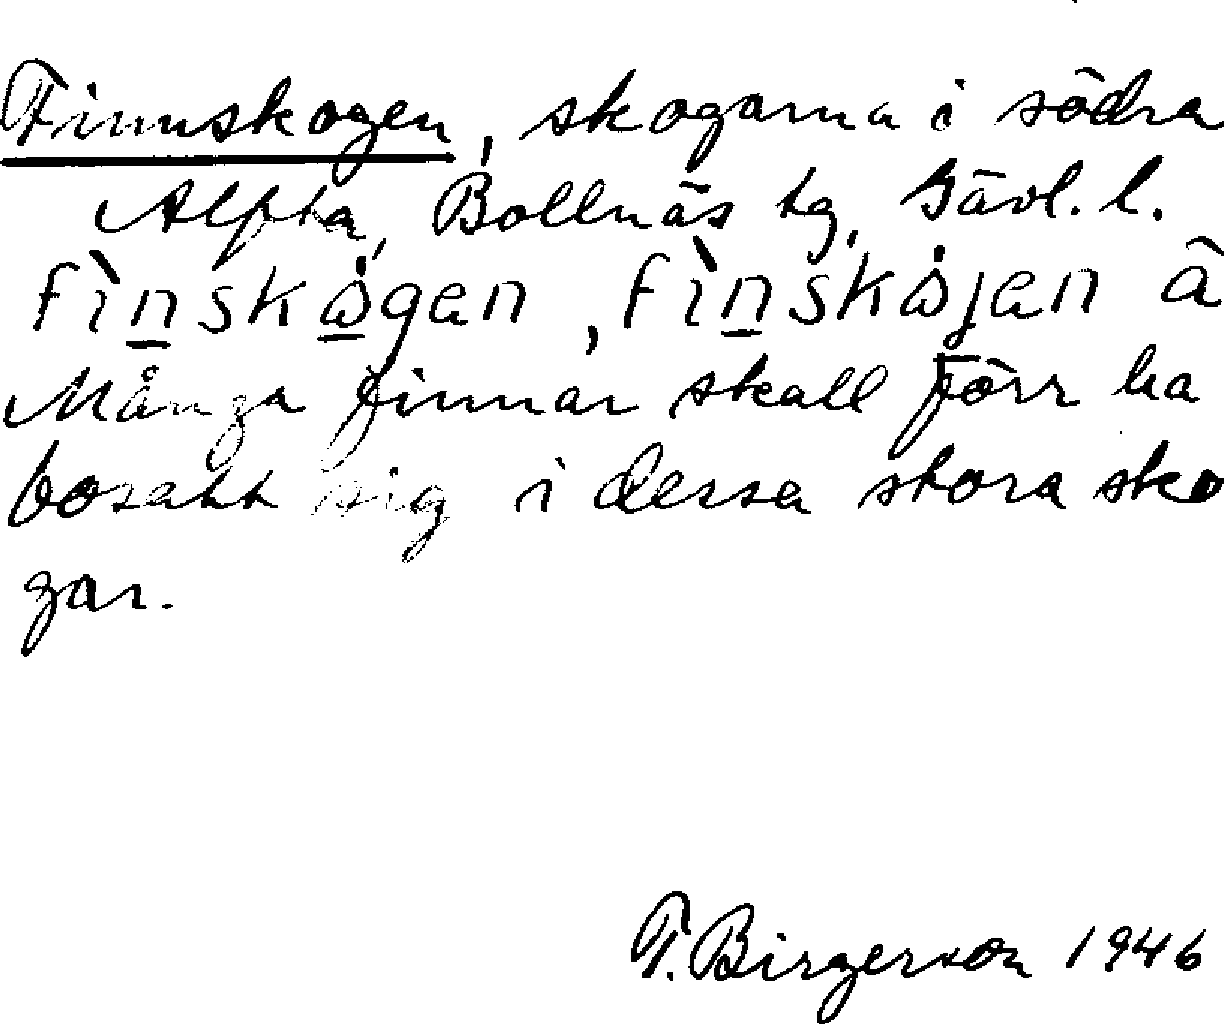 Finnskogen, skogarna i södra
Alfta, Bollnäs tg, Gävl. l.
fìnskågen, fìnskåjen â
Många finnar skall förr ha
bosatt sig i dessa stora sko
gar.
T. Birgerson 1946